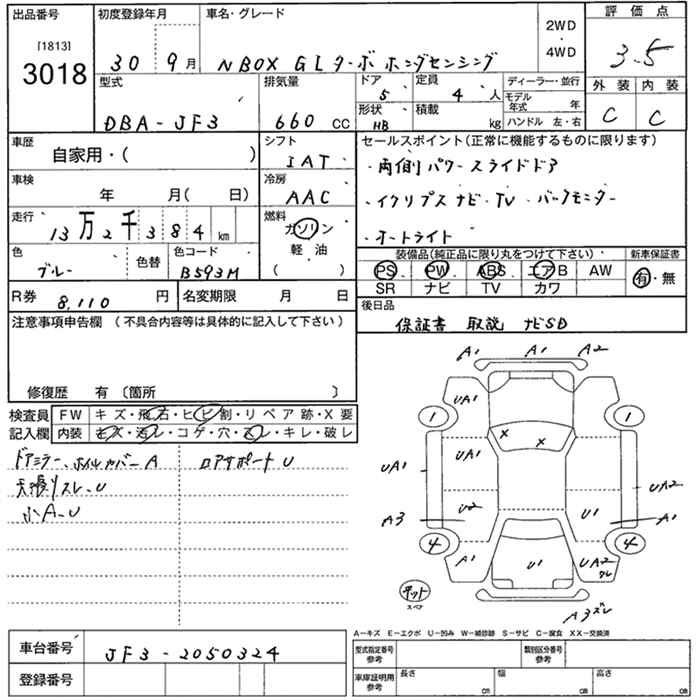 出品番号
[1813]
3018
初度登録年月
30 9月
車名・グレード
N BOX G L ターボ ホンダセンシング
2WD
・
4WD
評価点
3.5
外装 内装
C C
型式
DBA-JF3
排気量
660 CC
ドア
5
定員
4 人
形状
HB
積載
kg
ディーラー・並行
モデル年式 年
ハンドル 左・右
車歴
自家用・( )
シフト
IAT
車検
年 月( 日)
冷房
AAC
走行
13万2千384km
燃料
ガソリン
軽油
( )
色
ブルー
色替
色コード
B593M
R券
8,110 円
名変期限 月 日
セールスポイント(正常に機能するものに限ります)
・両側パワースライドドア
・イクリプスナビ・TV・バックモニター
・オートライト
装備品(純正品に限り丸をつけて下さい)
新車保証書
PS PW ABS エアB AW
SR ナビ TV カワ
有・無
後日品
保証書 取説 ナビSD
注意事項申告欄(不具合内容等は具体的に記入して下さい)
修復歴 有〔箇所 〕
検査員
記入欄
FW キズ・飛石・ヒビ割・リペア跡・X要
内装 キズ・汚レ・コゲ・穴・スレ・キレ・破レ
ドアミラー、ホイルカバーA
ロアサポートU
天張リスレ-U
小A-U
A1 A1 A2
UA1
1 1
X X
UA1 UA1
UA2
A3 U2 U1 A1
4 4
A1 U1 UA2
ワレ
キット
スペア
A3ズレ
A-キズ E-エクボ U-凹み W-補修跡 S-サビ C-腐食 XX-交換済
車台番号
JF3-2050324
登録番号
型式指定番号
参考
類別区分番号
参考
車庫証明用
参考
長さ cm
幅 cm
高さ cm